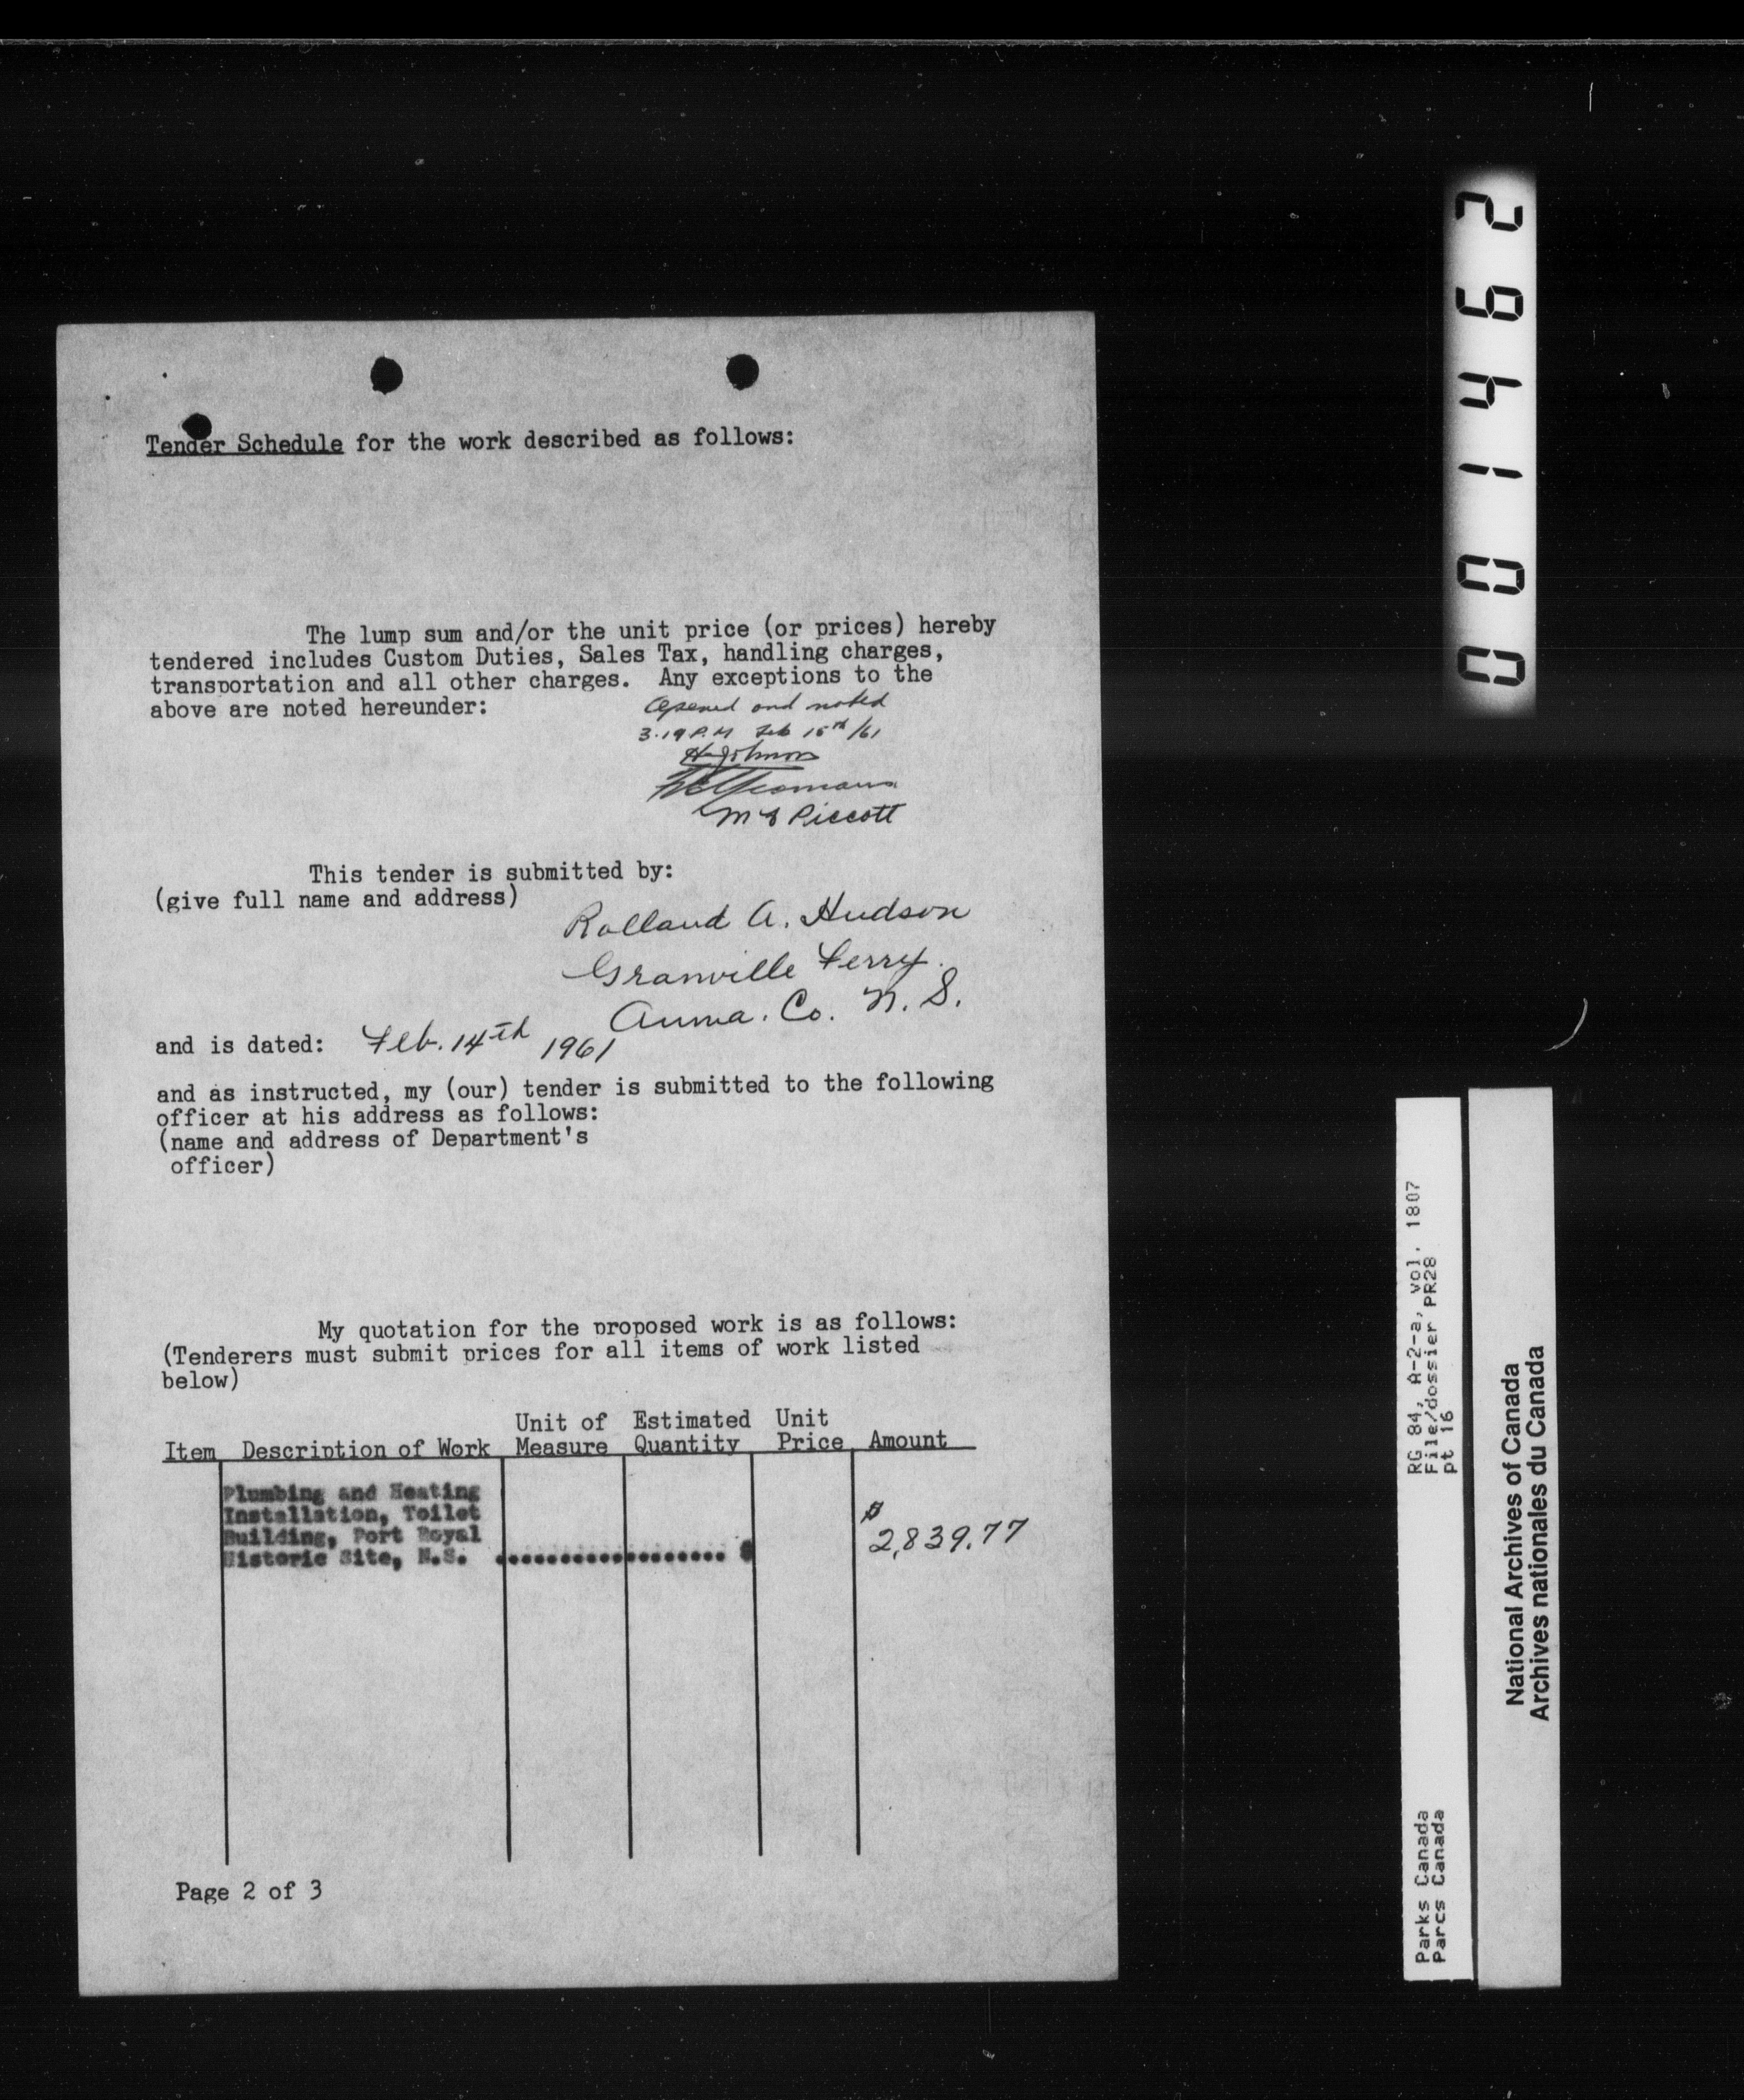 Tender Schedule for the work described as follows:
The lump sum and/or the unit price (or prices) hereby
tendered includes Custom Duties, Sales Tax, handling charges,
transportation and all other charges. Any exceptions to the
above are noted hereunder:
Opened and noted
3.19 P.M Feb 15th/61
H Johnson
Yeomans
M Piccott
This tender is submitted by:
(give full name and address)
Rolland A. Hudson
Granville Ferry.
Anna. Co. N. S.
and is dated: Feb. 14th 1961
and as instructed, my (our) tender is submitted to the following
officer at his address as follows:
(name and address of Department's
officer)
My quotation for the proposed work is as follows:
(Tenderers must submit prices for all items of work listed
below)
Item Description of Work Unit of Measure Estimated Quantity Unit Price Amount
Plumbing and Heating
Installation, Toilet
Building, Port Royal
Historic Site, N.S. .................. $
$ 2,839.77
Page 2 of 3
001462
RG 84, A-2-a, vol. 1807
File/dossier PR28
pt 16
Parks Canada
Parcs Canada
National Archives of Canada
Archives nationales du Canada